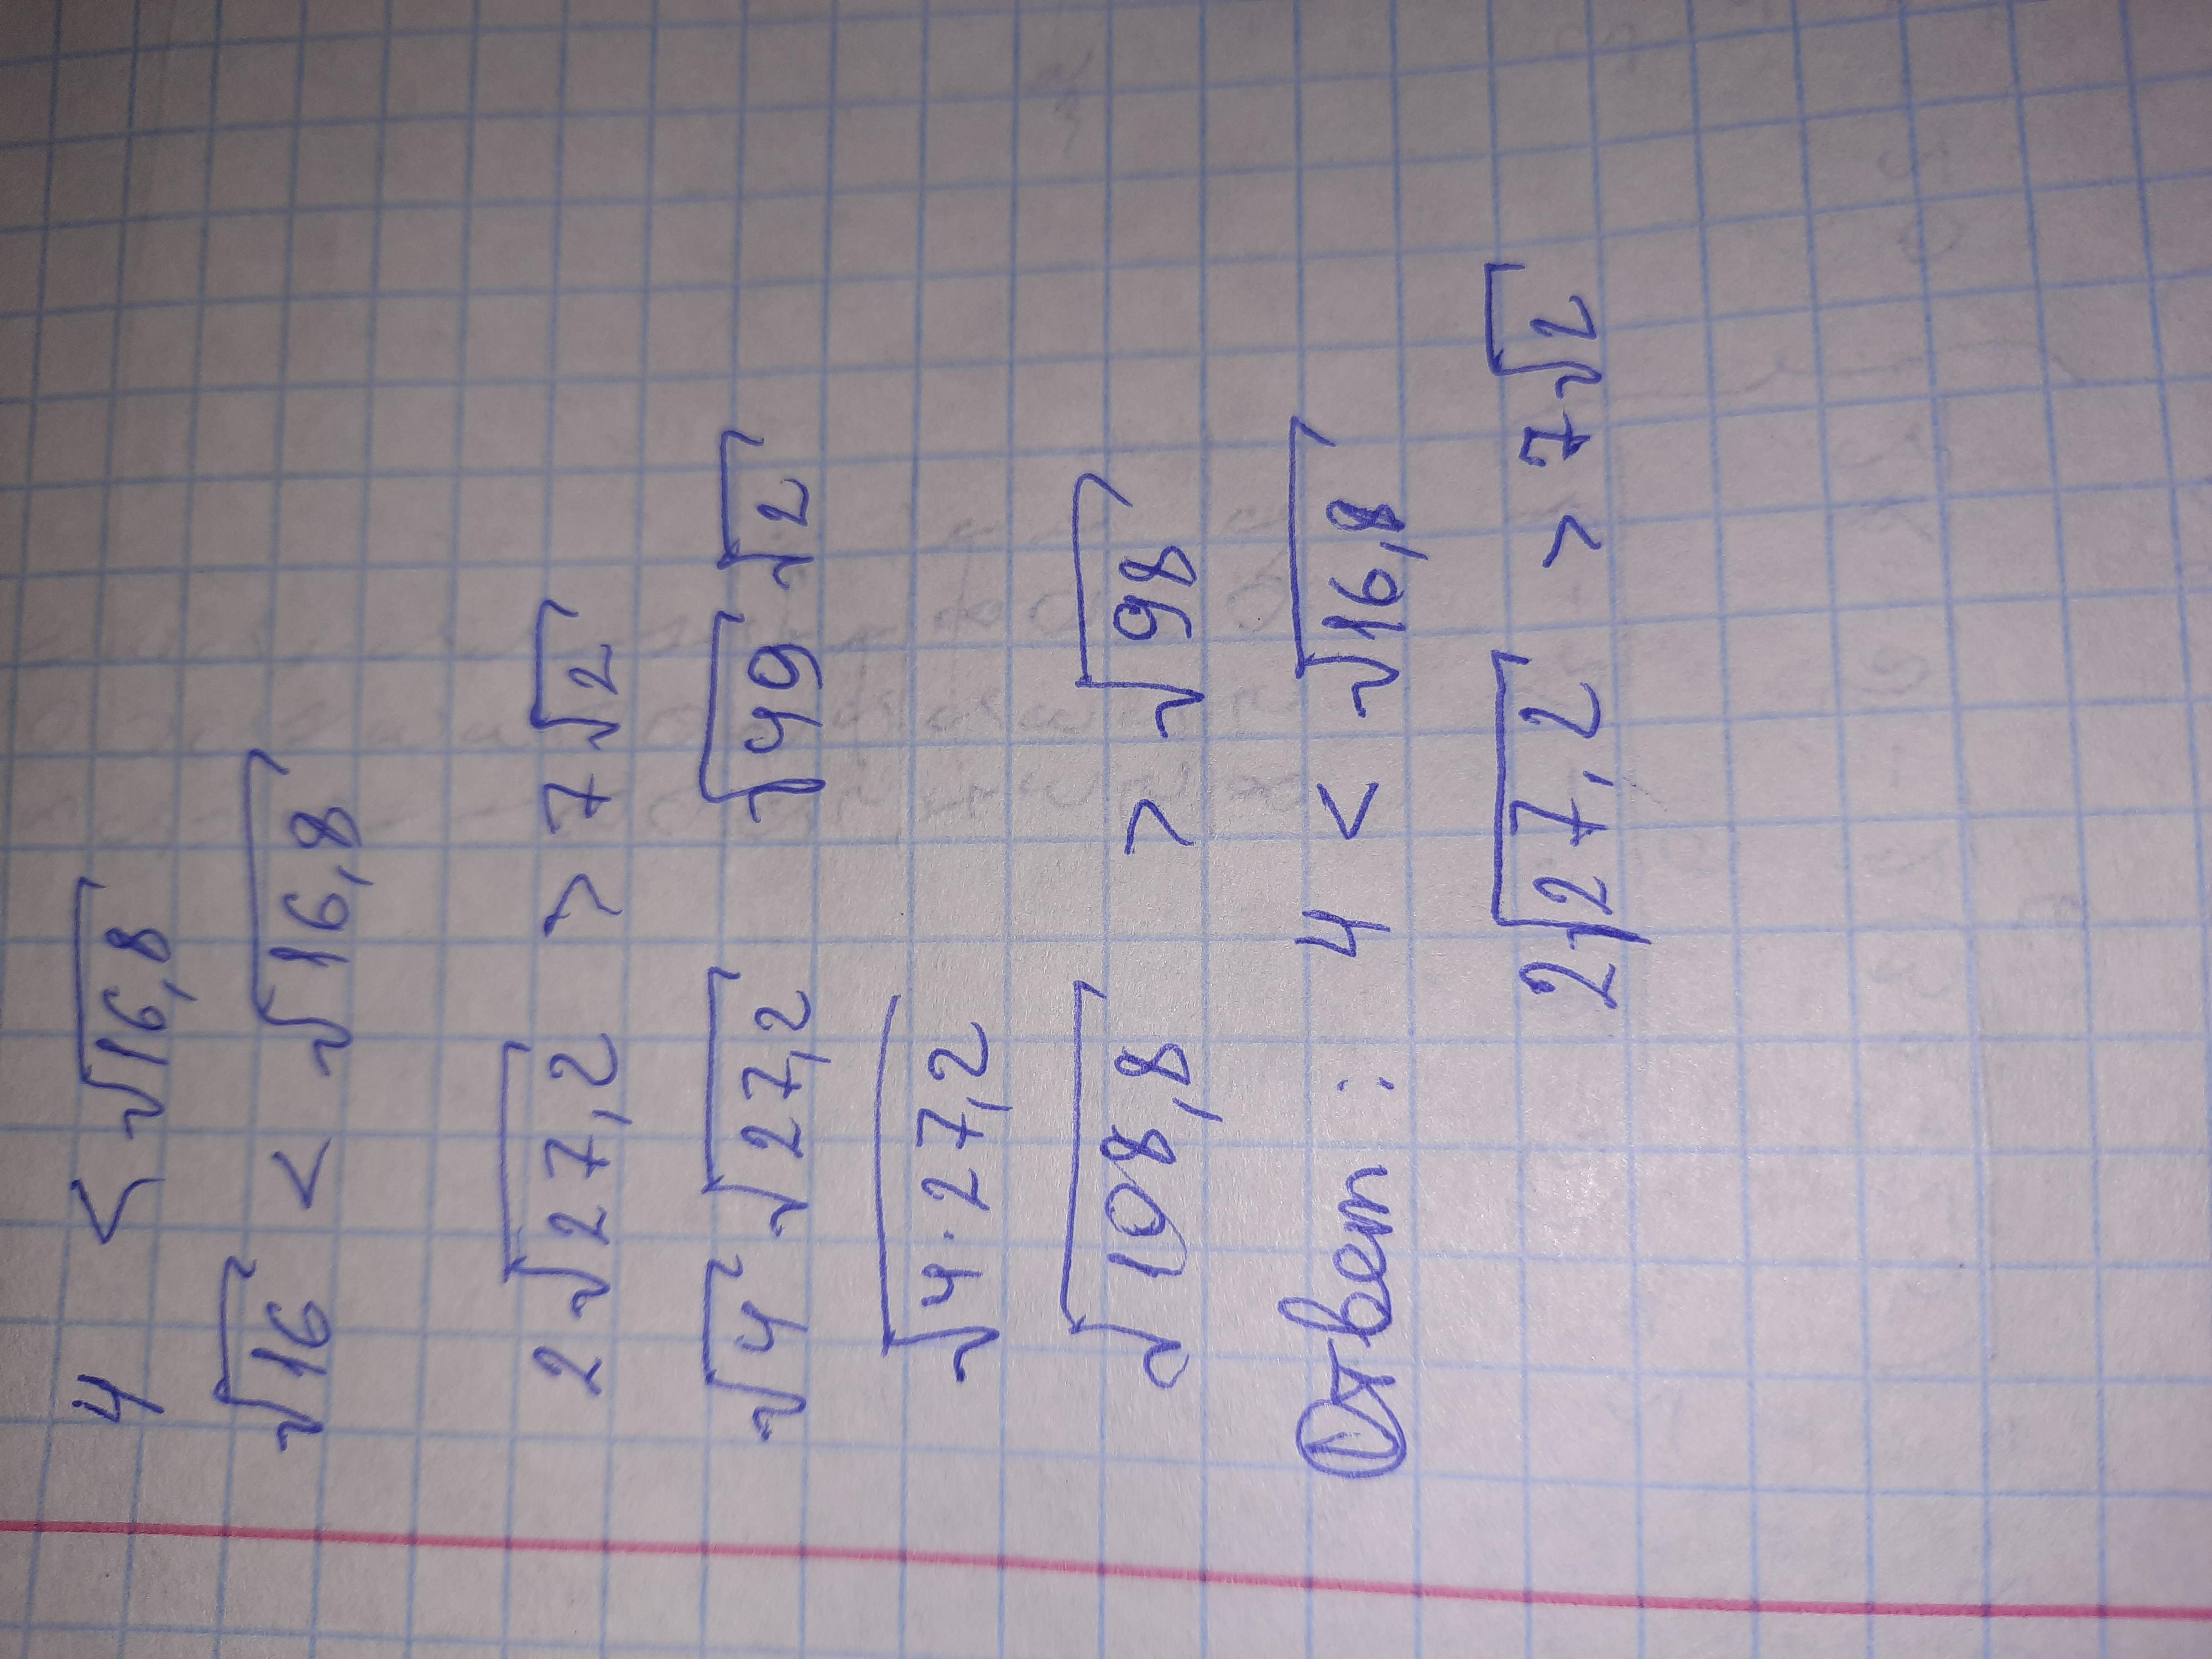 4 < √16,8
√16 < √16,8
2√27,2 > 7√2
√4 √27,2 √49 √2
√4·27,2
√108,8 > √98
Ответ: 4 < √16,8
2√27,2 > 7√2